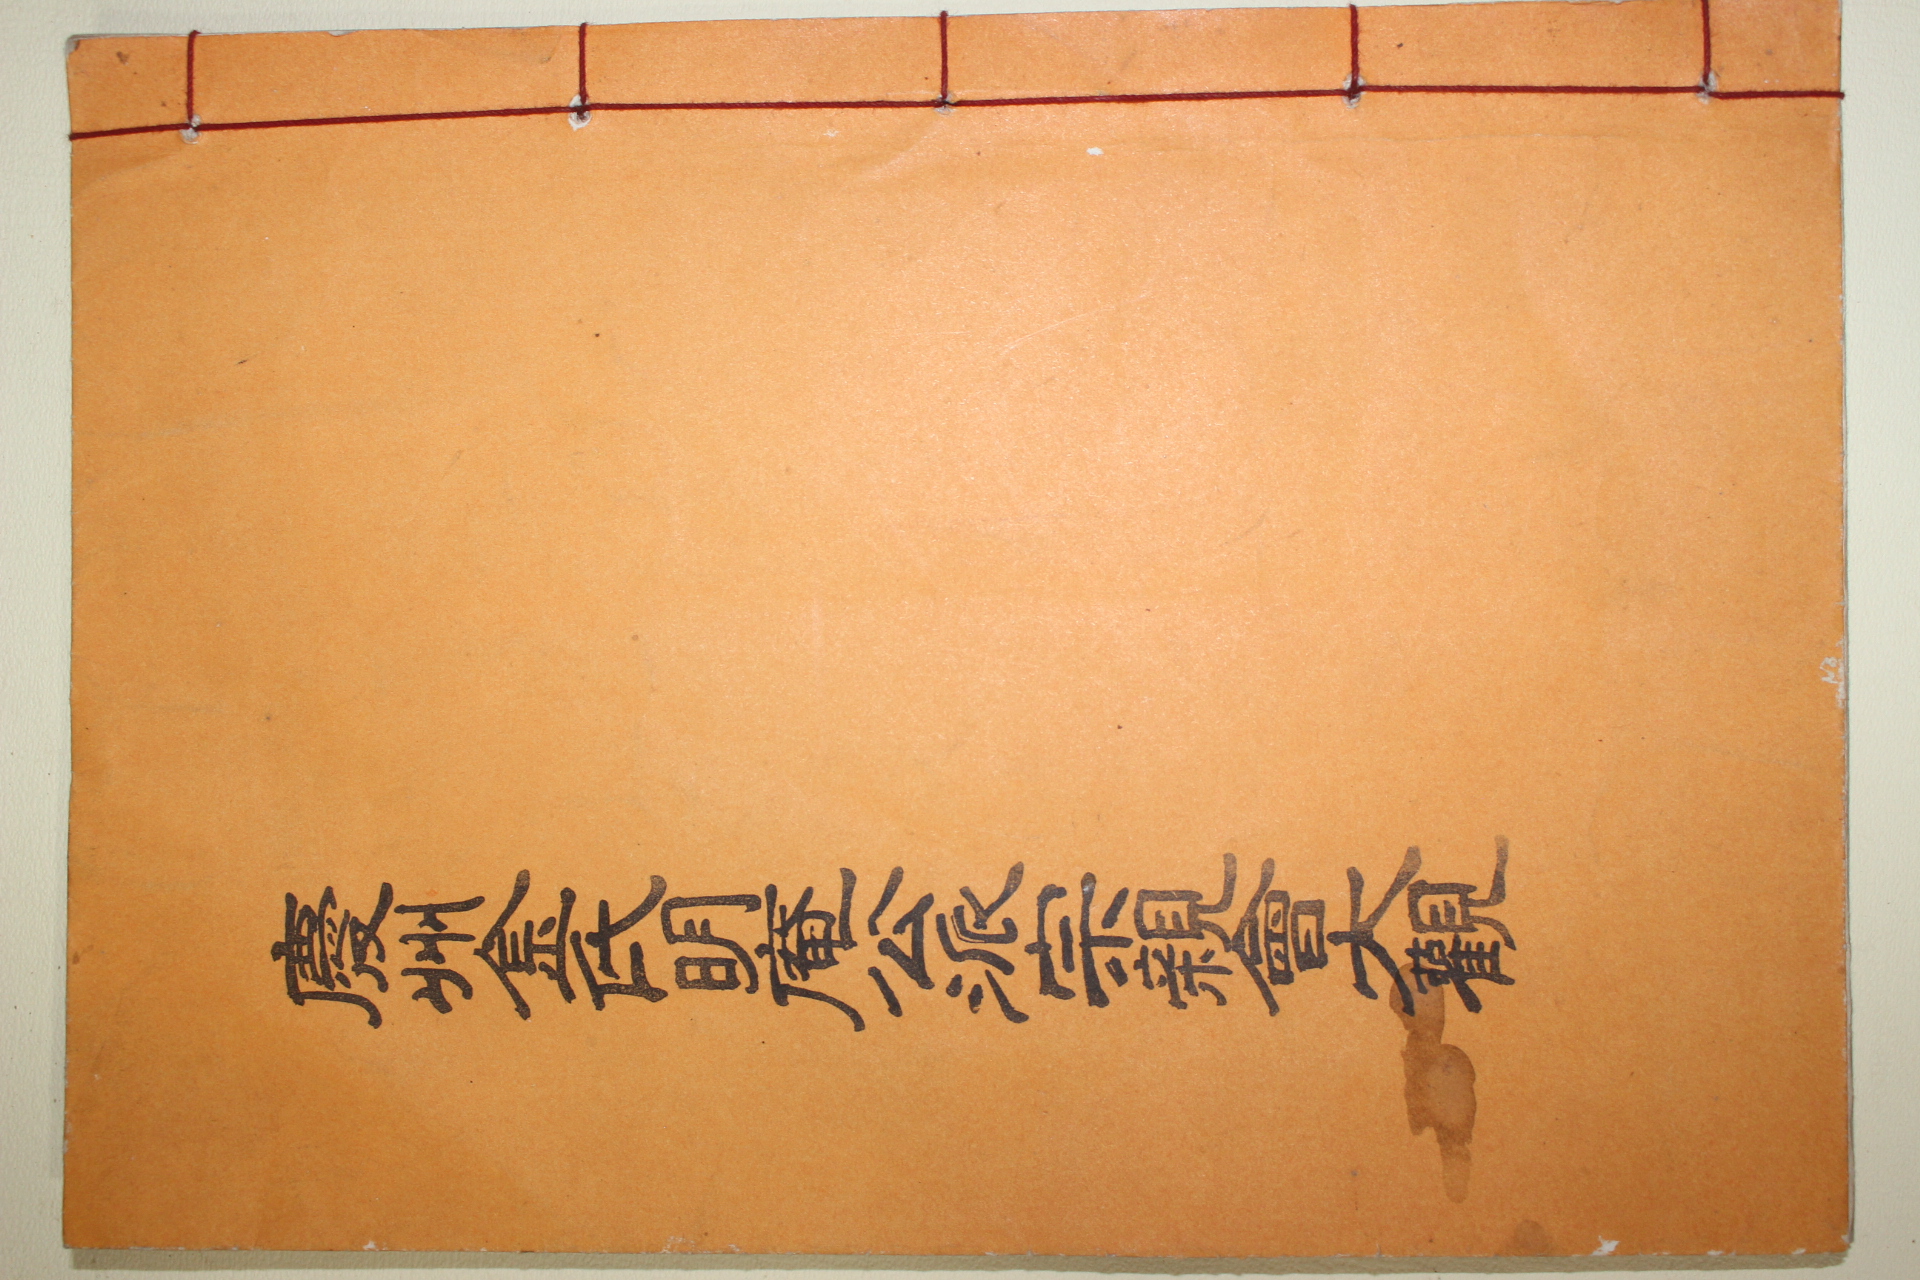 慶州金氏明庵公派宗親會大觀